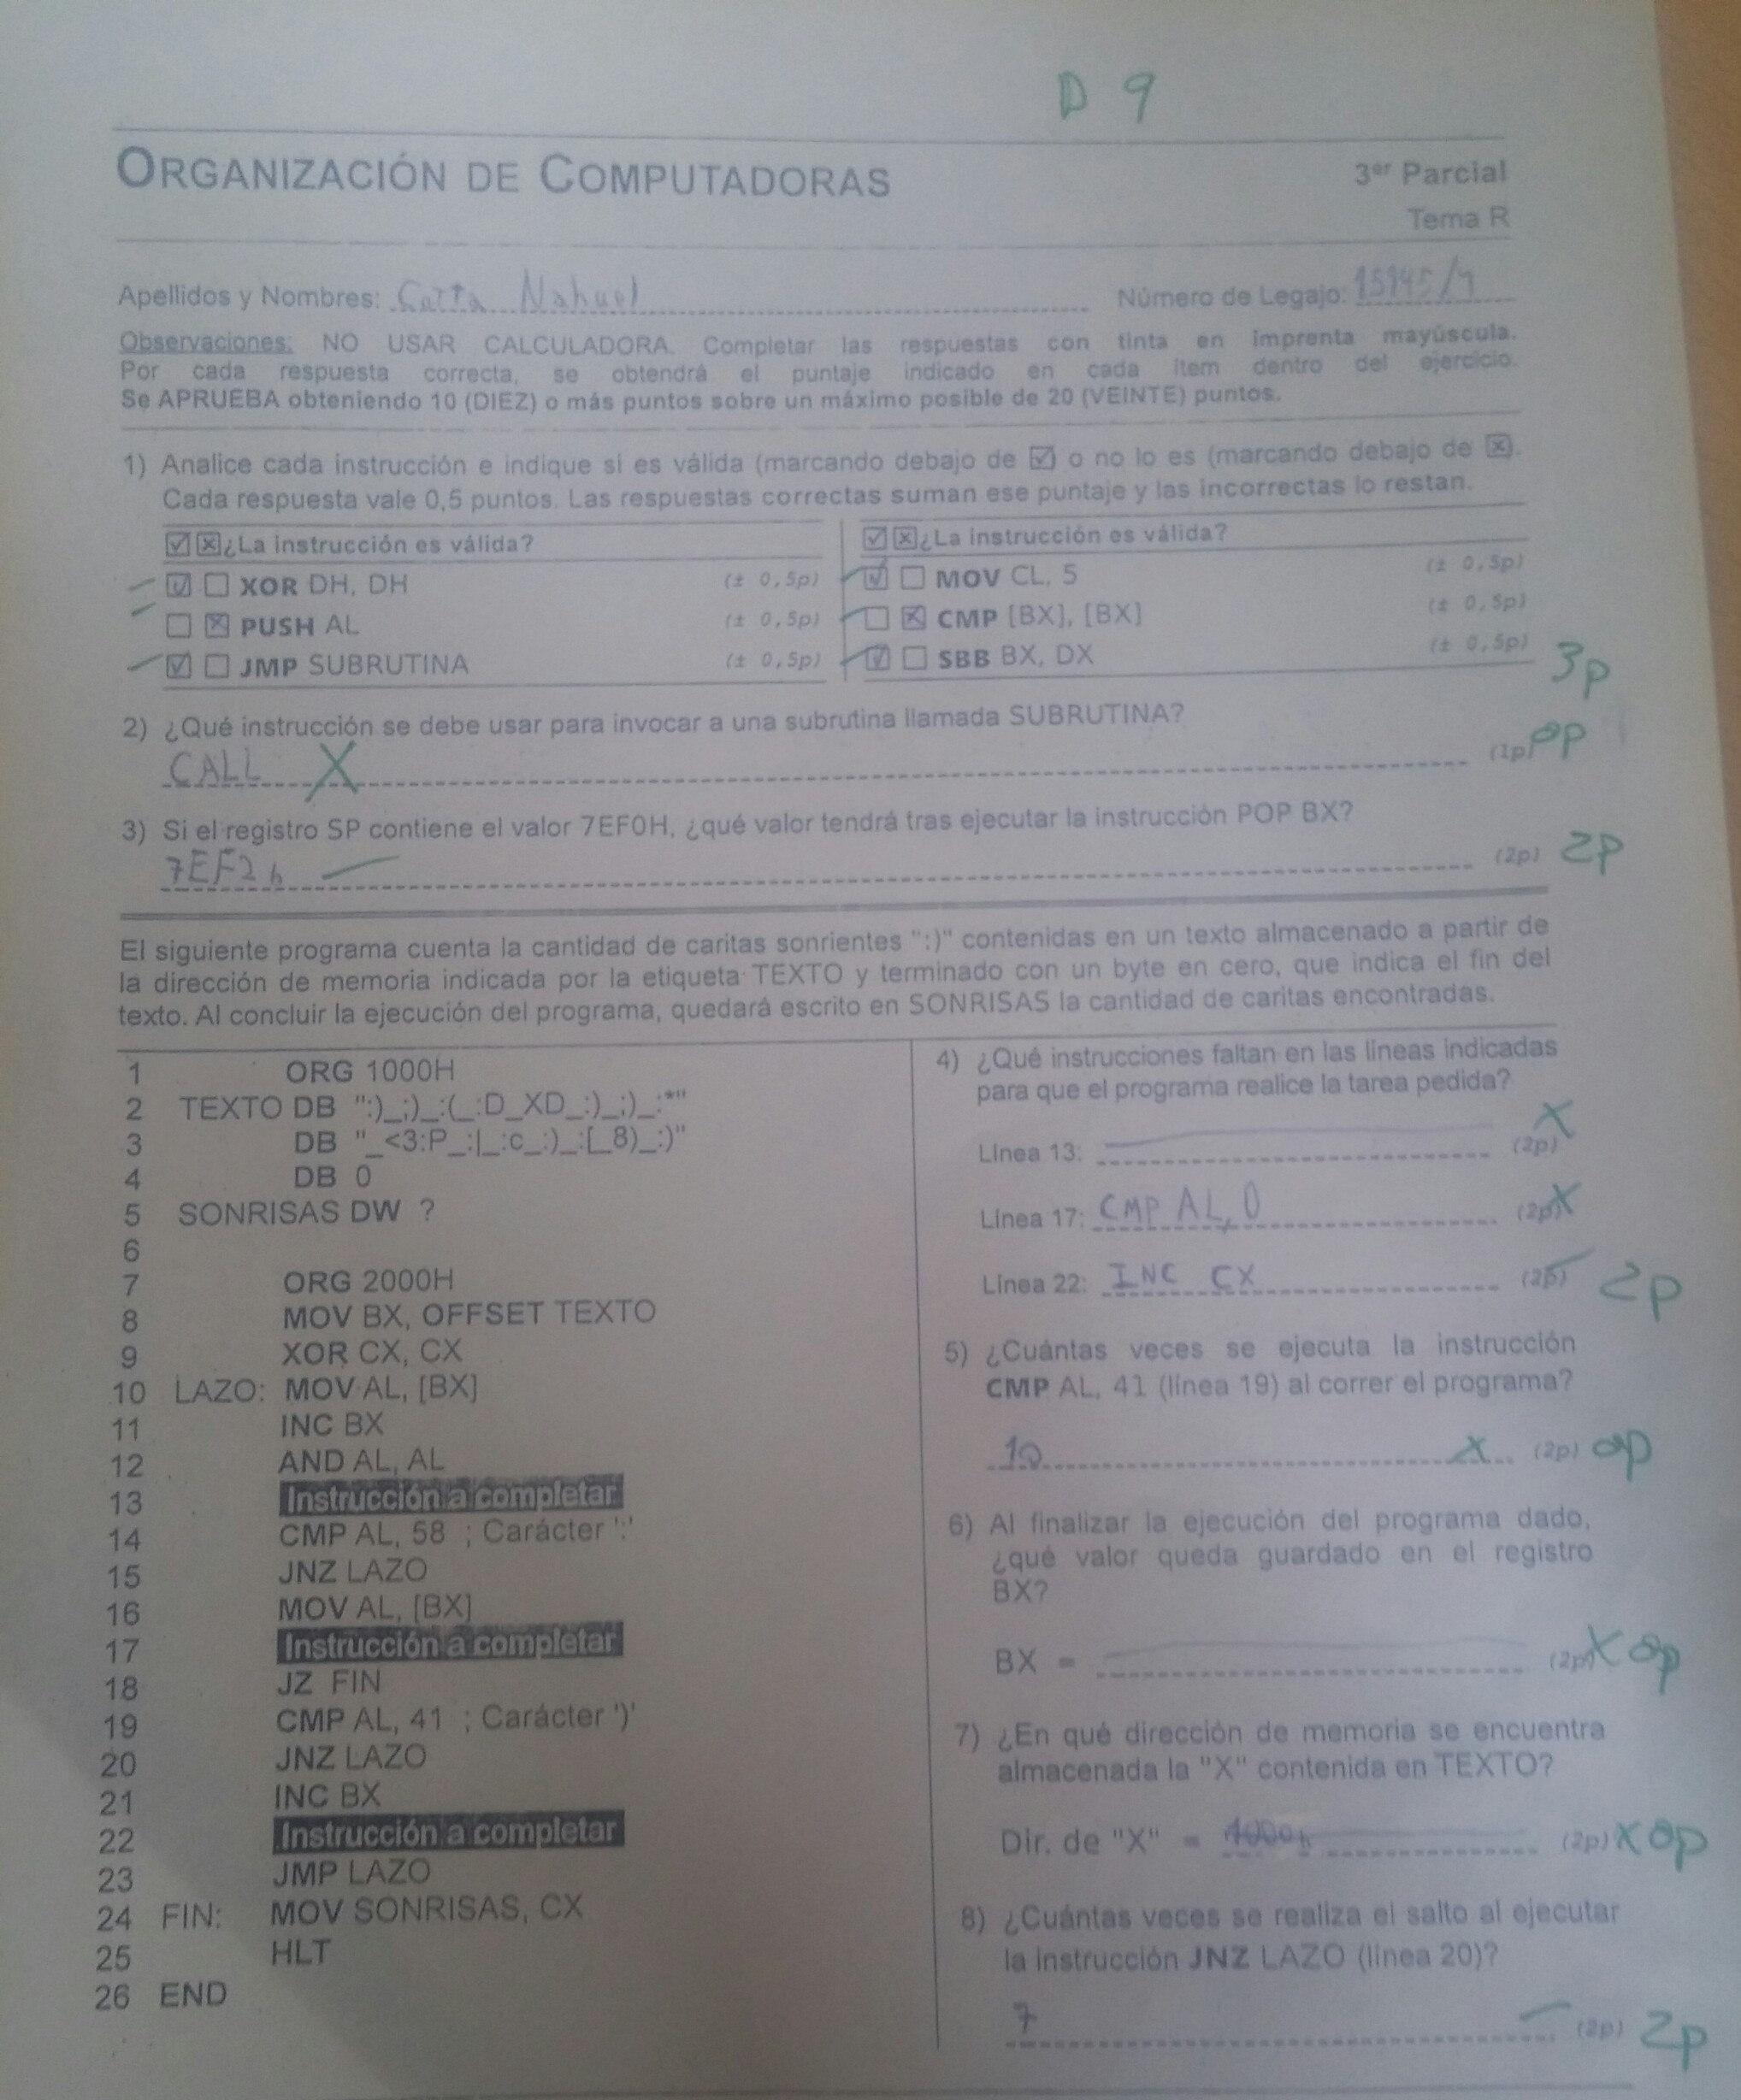 D 9
ORGANIZACIÓN DE COMPUTADORAS
3er Parcial
Tema R
Apellidos y Nombres: Cotta Nahuel Número de Legajo: 15945/9
Observaciones: NO USAR CALCULADORA. Completar las respuestas con tinta en imprenta mayúscula.
Por cada respuesta correcta, se obtendrá el puntaje indicado en cada ítem dentro del ejercicio.
Se APRUEBA obteniendo 10 (DIEZ) o más puntos sobre un máximo posible de 20 (VEINTE) puntos.
1) Analice cada instrucción e indique si es válida (marcando debajo de ☑ o no lo es (marcando debajo de ☒).
Cada respuesta vale 0,5 puntos. Las respuestas correctas suman ese puntaje y las incorrectas lo restan.
☑ ☒ ¿La instrucción es válida?
☑ ☐ XOR DH, DH (± 0,5p)
☐ ☒ PUSH AL (± 0,5p)
☑ ☐ JMP SUBRUTINA (± 0,5p)
☑ ☒ ¿La instrucción es válida?
☑ ☐ MOV CL, 5 (± 0,5p)
☐ ☒ CMP [BX], [BX] (± 0,5p)
☑ ☐ SBB BX, DX (± 0,5p)
3p
2) ¿Qué instrucción se debe usar para invocar a una subrutina llamada SUBRUTINA?
CALL X (1p) 0p
3) Si el registro SP contiene el valor 7EF0H, ¿qué valor tendrá tras ejecutar la instrucción POP BX?
7EF2h (2p) 2p
El siguiente programa cuenta la cantidad de caritas sonrientes ":)" contenidas en un texto almacenado a partir de
la dirección de memoria indicada por la etiqueta TEXTO y terminado con un byte en cero, que indica el fin del
texto. Al concluir la ejecución del programa, quedará escrito en SONRISAS la cantidad de caritas encontradas.
1 ORG 1000H
2 TEXTO DB ":)_;)_:(_:D_XD_:)_;)_:*"
3 DB "_<3:P_:|_:c_:)_:[_8)_:)"
4 DB 0
5 SONRISAS DW ?
6
7 ORG 2000H
8 MOV BX, OFFSET TEXTO
9 XOR CX, CX
10 LAZO: MOV AL, [BX]
11 INC BX
12 AND AL, AL
13 Instrucción a completar
14 CMP AL, 58 ; Carácter ':'
15 JNZ LAZO
16 MOV AL, [BX]
17 Instrucción a completar
18 JZ FIN
19 CMP AL, 41 ; Carácter ')'
20 JNZ LAZO
21 INC BX
22 Instrucción a completar
23 JMP LAZO
24 FIN: MOV SONRISAS, CX
25 HLT
26 END
4) ¿Qué instrucciones faltan en las líneas indicadas
para que el programa realice la tarea pedida?
Línea 13: (2p) X
Línea 17: CMP AL, 0 (2p) X
Línea 22: INC CX (2p) 2p
5) ¿Cuántas veces se ejecuta la instrucción
CMP AL, 41 (línea 19) al correr el programa?
10 X (2p) 0p
6) Al finalizar la ejecución del programa dado,
¿qué valor queda guardado en el registro
BX?
BX = (2p) X 0p
7) ¿En qué dirección de memoria se encuentra
almacenada la "X" contenida en TEXTO?
Dir. de "X" = (2p) X 0p
8) ¿Cuántas veces se realiza el salto al ejecutar
la instrucción JNZ LAZO (línea 20)?
7 (2p) 2p